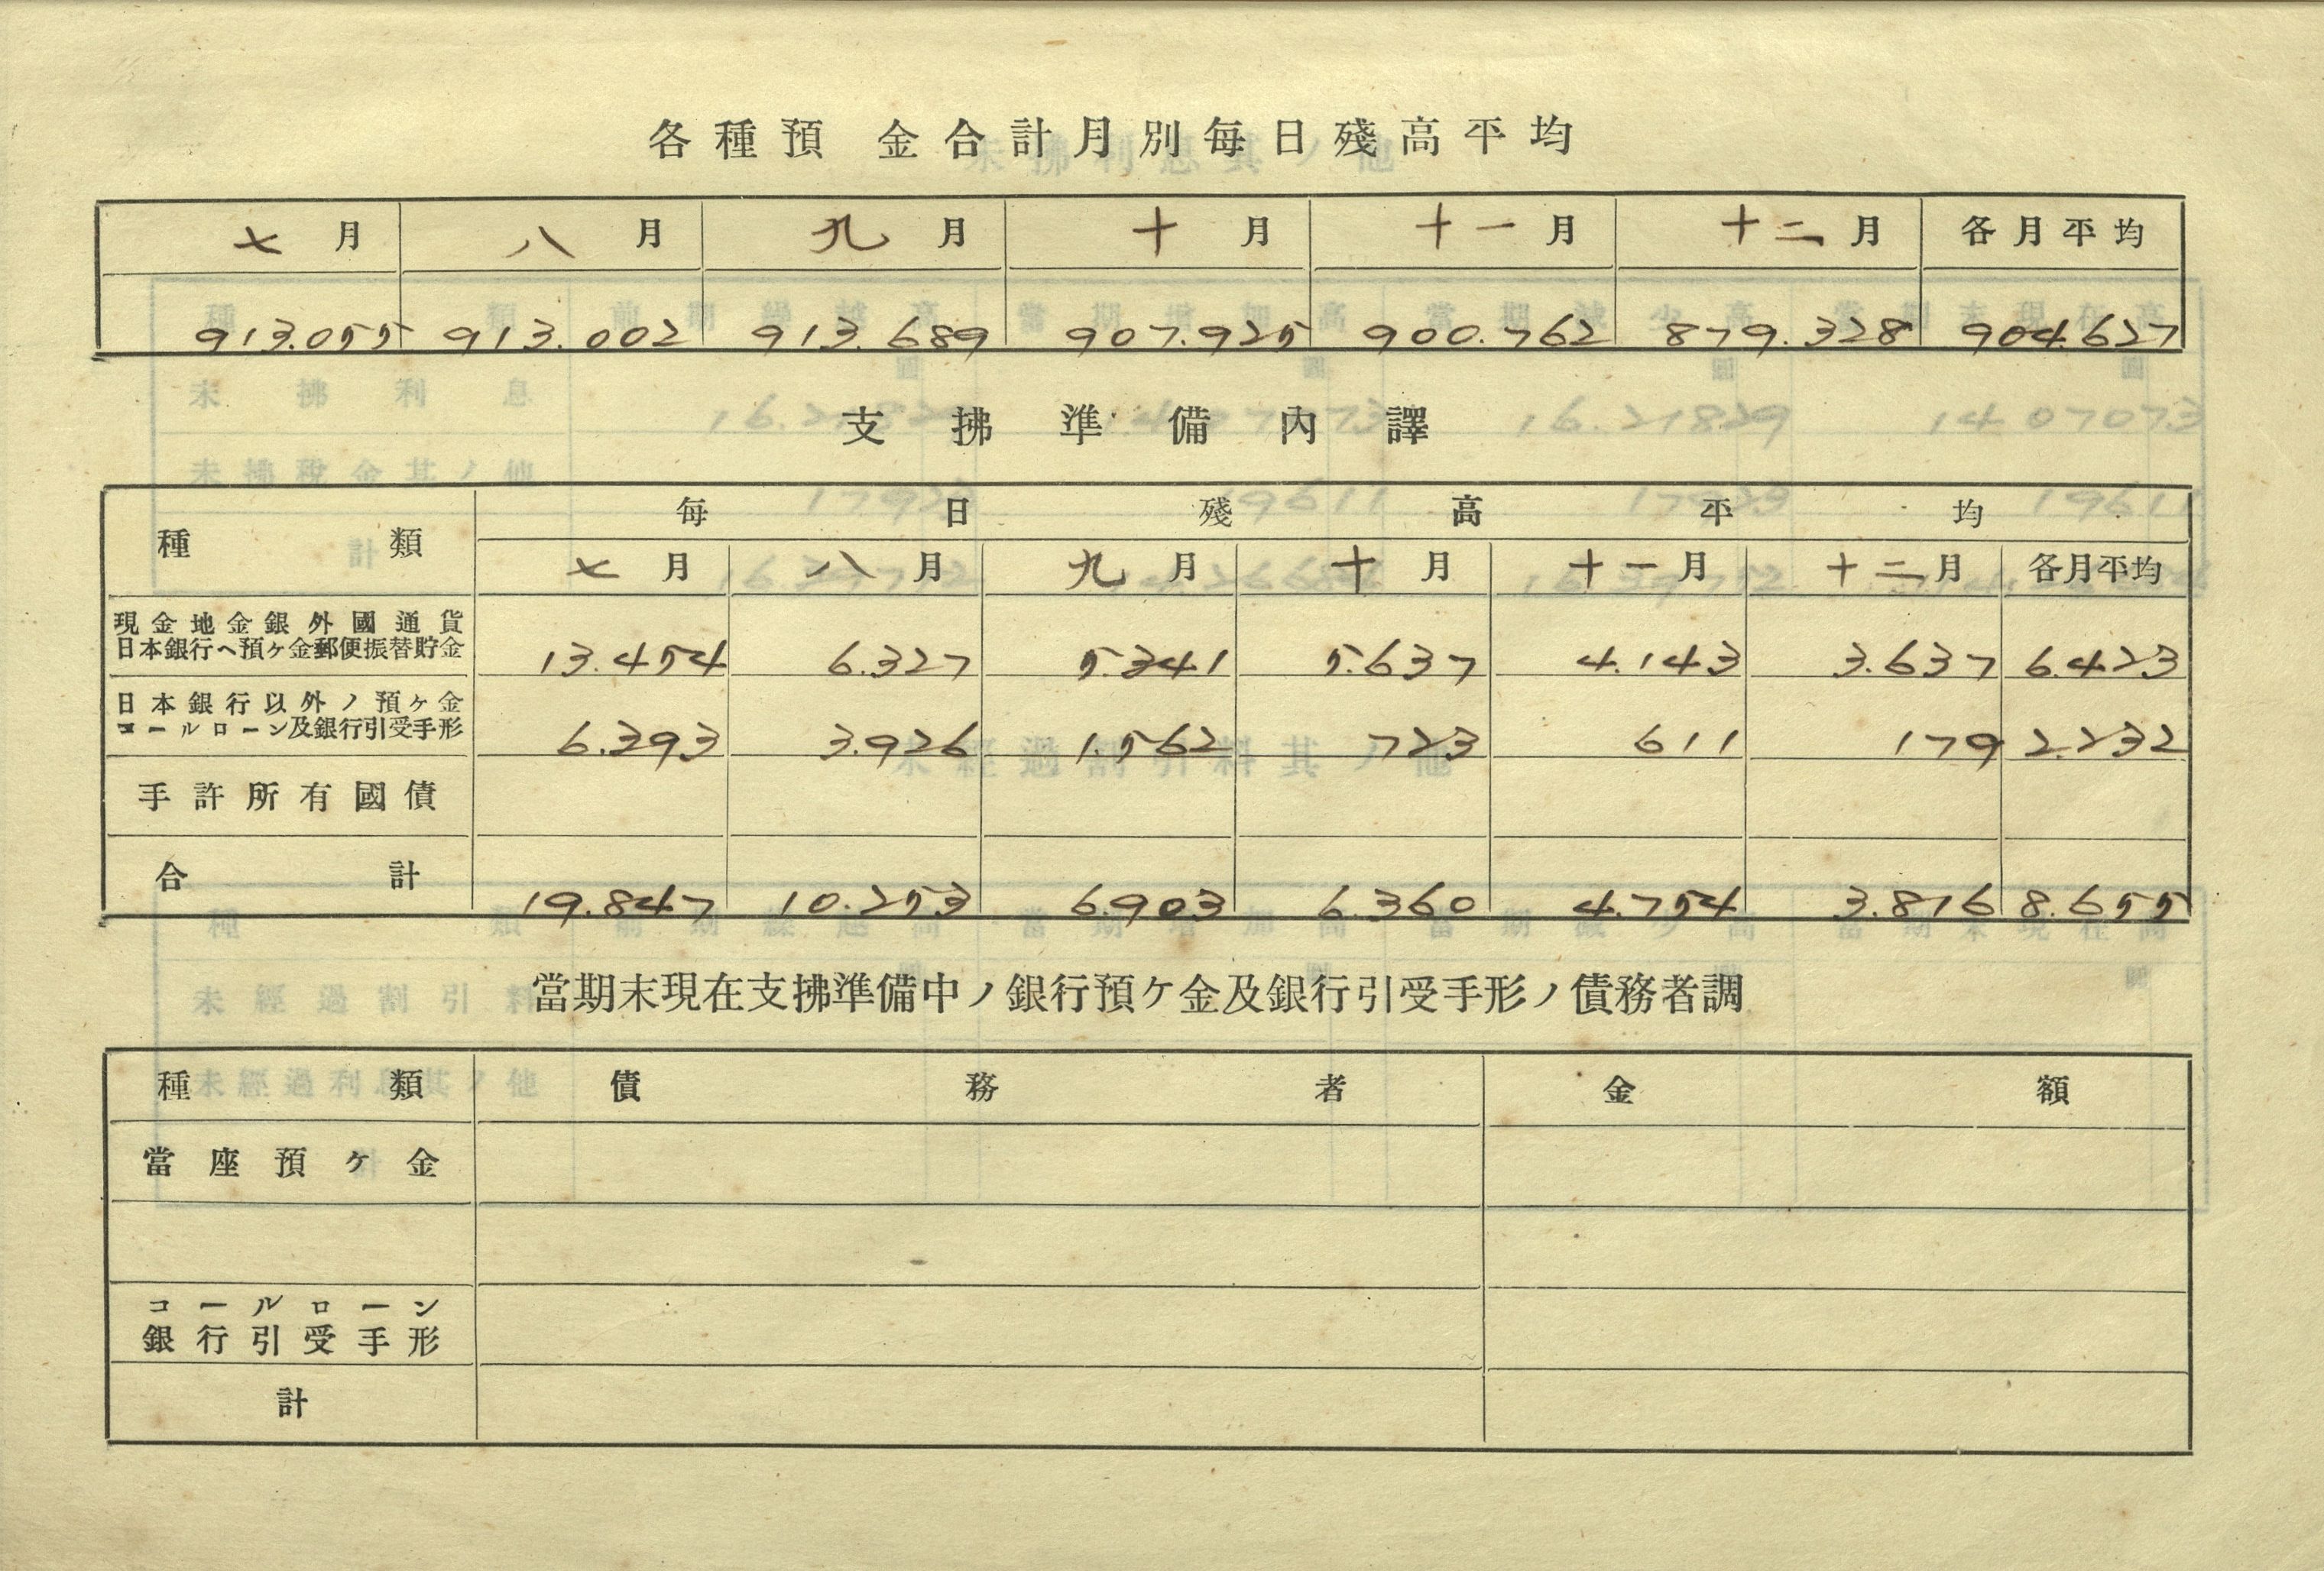 各種預金合計月別毎日殘高平均
七月 八月 九月 十月 十一月 十二月 各月平均
913.055 913.002 913.689 907.925 900.762 879.328 904.627
支拂準備內譯
種類 毎日殘高平均
七月 八月 九月 十月 十一月 十二月 各月平均
現金地金銀外國通貨
日本銀行ヘ預ヶ金郵便振替貯金 13.454 6.327 5.341 5.637 4.143 3.637 6.423
日本銀行以外ノ預ヶ金
コールローン及銀行引受手形 6.393 3.926 1.562 723 611 179 2.232
手許所有國債
合計 19.847 10.253 6.903 6.360 4.754 3.816 8.655
當期末現在支拂準備中ノ銀行預ケ金及銀行引受手形ノ債務者調
種類 債務者 金額
當座預ヶ金
コールローン
銀行引受手形
計